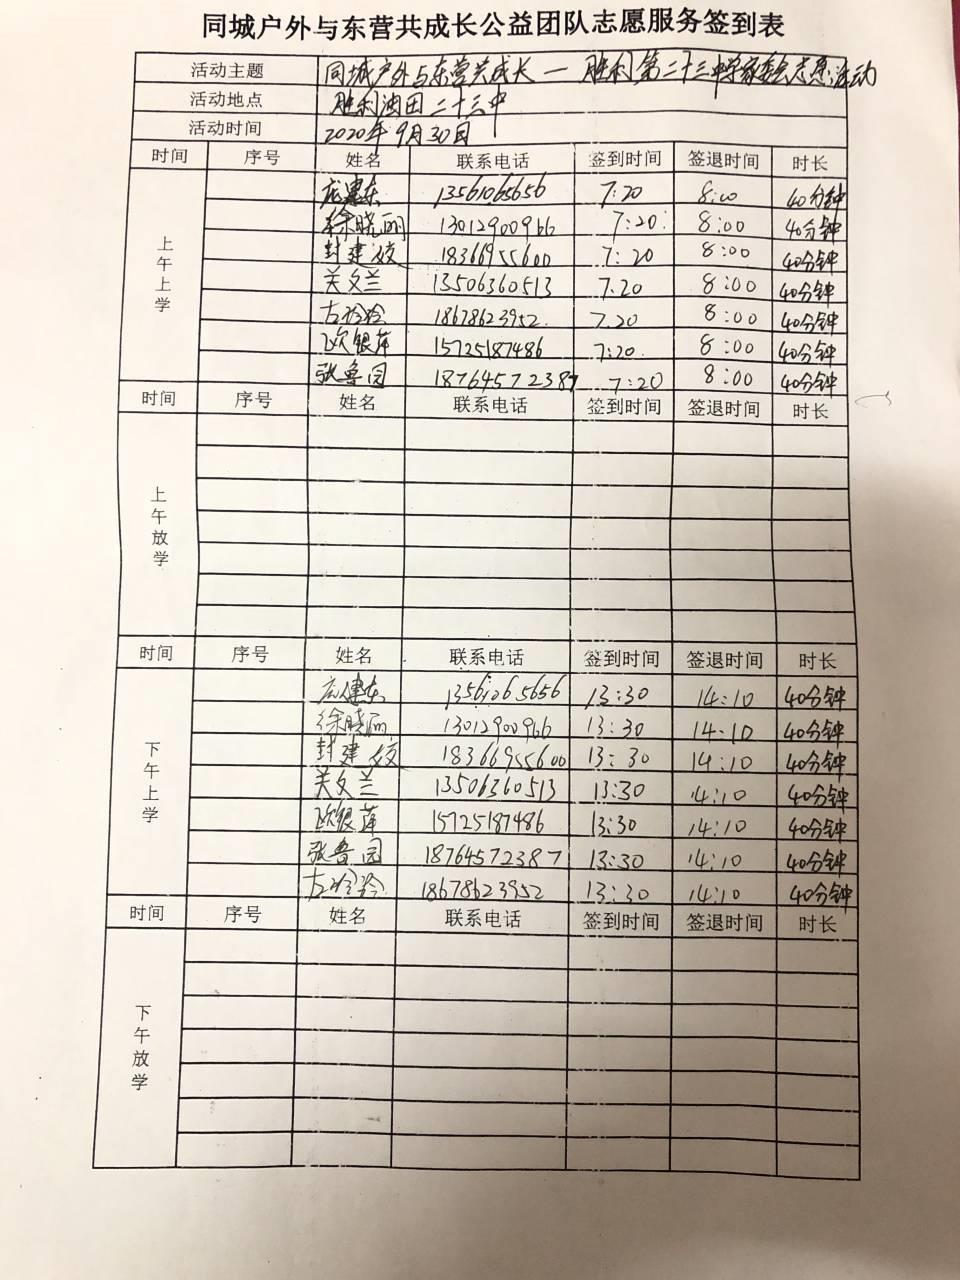 同城户外与东营共成长公益团队志愿服务签到表
活动主题 同城户外与东营共成长一胜利第二十三中学家委会志愿活动
活动地点 胜利油田二十三中
活动时间 2020年9月30日
时间 序号 姓名 联系电话 签到时间 签退时间 时长
上午上学
庞建东 13561065656 7:20 8:00 40分钟
徐晓丽 13012900966 7:20 8:00 40分钟
封建姣 18366955600 7:20 8:00 40分钟
关文兰 13506360513 7.20 8:00 40分钟
古玲玲 18678623952 7.20 8:00 40分钟
欧银萍 15725187486 7:20 8:00 40分钟
张鲁园 18764572387 7:20 8:00 40分钟
时间 序号 姓名 联系电话 签到时间 签退时间 时长
上午放学
时间 序号 姓名 联系电话 签到时间 签退时间 时长
下午上学
庞健东 13561065656 13:30 14:10 40分钟
徐晓丽 13012900966 13:30 14:10 40分钟
封建姣 18366955600 13:30 14:10 40分钟
关文兰 13506360513 13:30 14:10 40分钟
欧银萍 15725187486 13:30 14:10 40分钟
张鲁园 18764572387 13:30 14:10 40分钟
古玲玲 18678623952 13:30 14:10 40分钟
时间 序号 姓名 联系电话 签到时间 签退时间 时长
下午放学